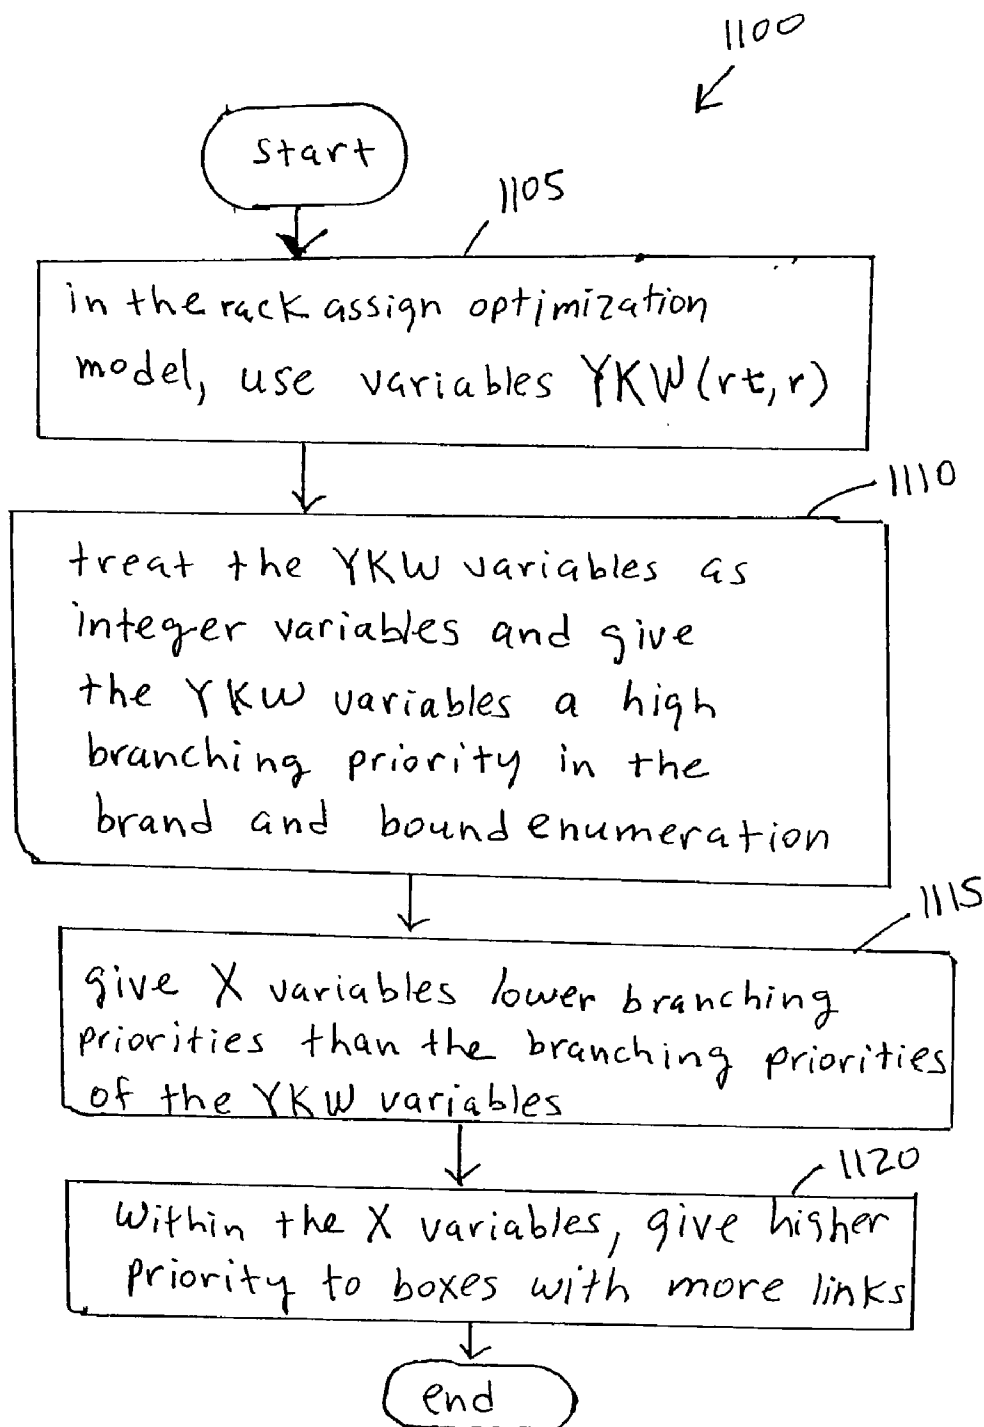 1100
start
1105
in the rack assign optimization
model, use variables YKW(rt,r)
1110
treat the YKW variables as
integer variables and give
the YKW variables a high
branching priority in the
brand and bound enumeration
1115
give X variables lower branching
priorities than the branching priorities
of the YKW variables
1120
Within the X variables, give higher
priority to boxes with more links
end